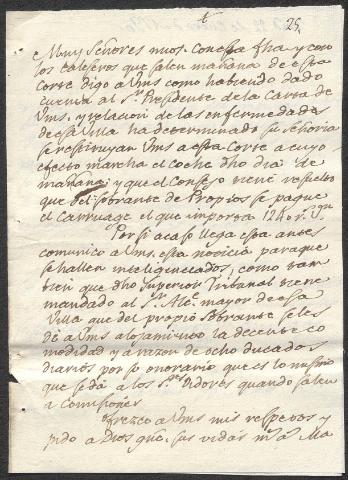 25
Muy Señores mios. Con esta fha y con
los caleseros que salen mañana de esta
Corte digo a Vms como habiendo dado
cuenta al Sr. Presidente de la Carta de
Vms, y relacion de las enfermedades
de esa Villa ha determinado su Señoria
se restituyan Vms a esta Corte a cuyo
efecto marcha el coche dho dia de
mañana; y que el Consejo tiene resuelto
que del sobrante de Propios se pague
el carruage el que importa 1240 rs. vn
Por si acaso llega esta antes
comunico a Vms. esta noticia para que
se hallen inteligenciados, como tam
bien que dho Superior Tribunal tiene
mandado al Sr. Alce. mayor de esa
Villa que del propio Sobrante se les
dé a Vms alojamiento la decente co
modidad y a razon de ocho ducados
diarios por su onorario que es lo mismo
que se dá a los Ses. Oidores quando salen
a Comisiones
Ofrezco a Vms mis respetos y
pido a Dios gue. sus vidas ms. as. Ma